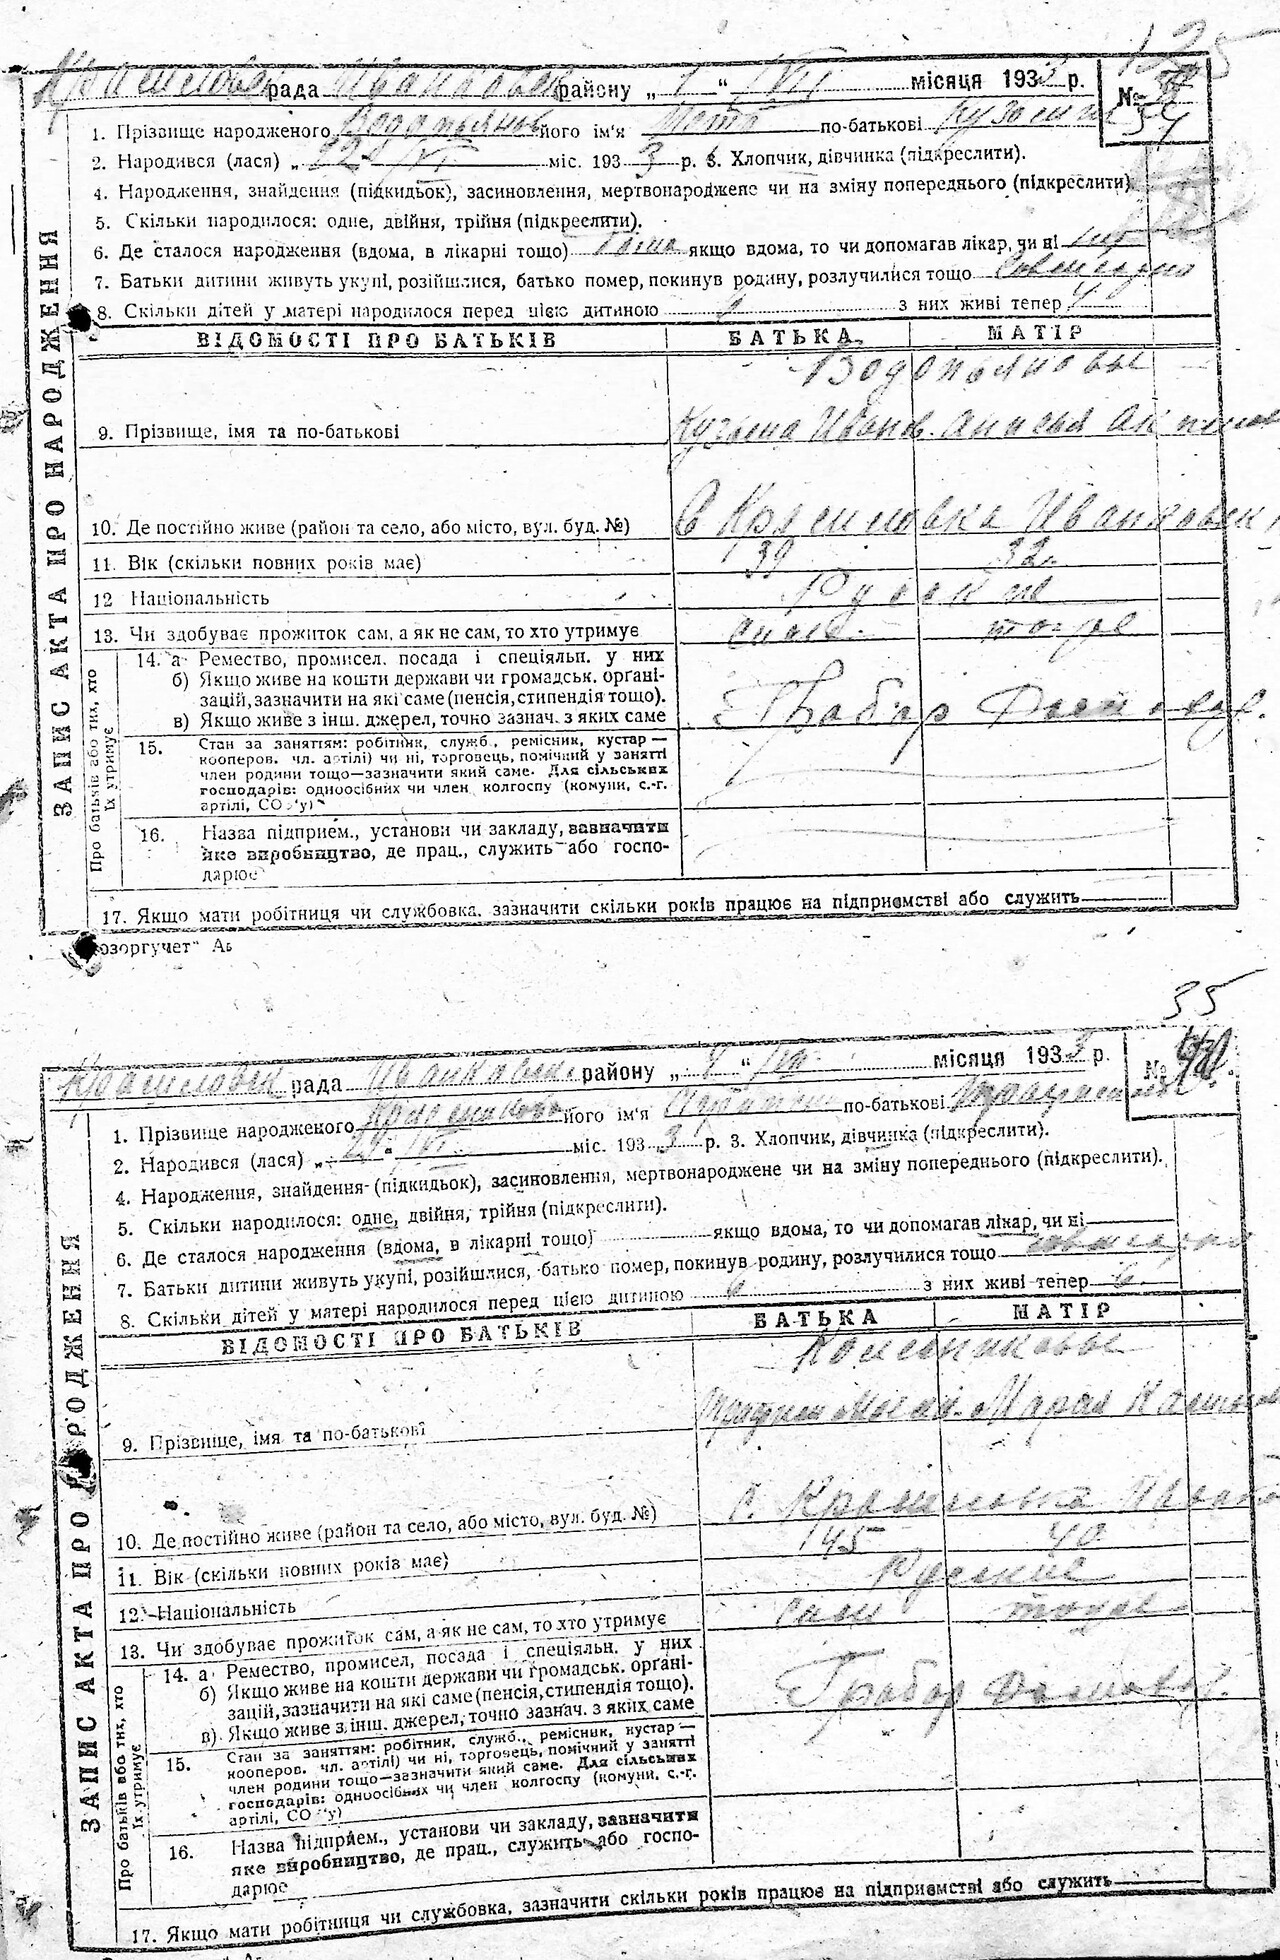 125
Красиловск рада Иванковск району „ 1 “ VII місяця 1933 р.
№ 34
1. Прізвище народженого Водопьянов його ім'я по-батькові Кузьмич
2. Народився (лася) „ 22 “ VI міс. 1933 р. 3. Хлопчик, дівчинка (підкреслити).
4. Народження, знайдення (підкидьок), засиновлення, мертвонароджене чи на зміну попереднього (підкреслити)
5. Скільки народилося: одне, двійня, трійня (підкреслити).
6. Де сталося народження (вдома, в лікарні тощо) якщо вдома, то чи допомагав лікар, чи ні
7. Батьки дитини живуть укупі, розійшлися, батько помер, покинув родину, розлучилися тощо совместно
8. Скільки дітей у матері народилося перед цією дитиною з них живі тепер 4
ЗАПИС АКТА ПРО НАРОДЖЕННЯ
ВІДОМОСТІ ПРО БАТЬКІВ БАТЬКА МАТІР
Водопьяновы
9. Прізвище, імя та по-батькові Кузьма Иванов.
10. Де постійно живе (район та село, або місто, вул. буд. №) С Красиловка Иванковск
11. Вік (скільки повних років має) 39 32
12 Національність Русские
13. Чи здобуває прожиток сам, а як не сам, то хто утримує сами тоже
Про батьків або тих, хто їх утримує
14. а Ремество, промисел, посада і спеціяльн. у них
б) Якщо живе на кошти держави чи громадськ. орґані-
зацій, зазначити на які саме (пенсія, стипендія тощо).
в) Якщо живе з інш. джерел, точно зазнач. з яких саме Грабар Домохоз.
15. Стан за заняттям: робітник, служб., ремісник, кустар —
кооперов. чл. артілі) чи ні, торговець, помічний у занятті
член родини тощо—зазначити який саме. Для сільських
господарів: одноосібних чи член колгоспу (комуни, с.-г.
артілі, СО у)
16. Назва підприєм., установи чи закладу, зазначити
яке виробництво, де прац., служить або госпо-
дарює
17. Якщо мати робітниця чи службовка, зазначити скільки років працює на підприємстві або служить
озоргучет“
35
Красиловск рада Иванковск району „ 1 “ VII місяця 1933 р.
№ 40
1. Прізвище народженого його ім'я по-батькові
2. Народився (лася) „ 24 “ VI міс. 1933 р. 3. Хлопчик, дівчинка (підкреслити).
4. Народження, знайдення (підкидьок), засиновлення, мертвонароджене чи на зміну попереднього (підкреслити).
5. Скільки народилося: одне, двійня, трійня (підкреслити).
6. Де сталося народження (вдома, в лікарні тощо) якщо вдома, то чи допомагав лікар, чи ні
7. Батьки дитини живуть укупі, розійшлися, батько помер, покинув родину, розлучилися тощо совместно
8. Скільки дітей у матері народилося перед цією дитиною 6 з них живі тепер 6
ЗАПИС АКТА ПРО НАРОДЖЕННЯ
ВІДОМОСТІ ПРО БАТЬКІВ БАТЬКА МАТІР
Колесниковы
9. Прізвище, імя та по-батькові Мария
10. Де постійно живе (район та село, або місто, вул. буд. №) с. Красиловка
11. Вік (скільки повних років має) 45 40
12. Національність Русские
13. Чи здобуває прожиток сам, а як не сам, то хто утримує сами тоже
Про батьків або тих, хто їх утримує
14. а Ремество, промисел, посада і спеціяльн. у них
б) Якщо живе на кошти держави чи громадськ. орґані-
зацій, зазначити на які саме (пенсія, стипендія тощо).
в) Якщо живе з інш. джерел, точно зазнач. з яких саме Грабар Домохоз.
15. Стан за заняттям: робітник, служб., ремісник, кустар —
кооперов. чл. артілі) чи ні, торговець, помічний у занятті
член родини тощо—зазначити який саме. Для сільських
господарів: одноосібних чи член колгоспу (комуни, с.-г.
артілі, СО у)
16. Назва підприєм., установи чи закладу, зазначити
яке виробництво, де прац., служить або госпо-
дарює
17. Якщо мати робітниця чи службовка, зазначити скільки років працює на підприємстві або служить